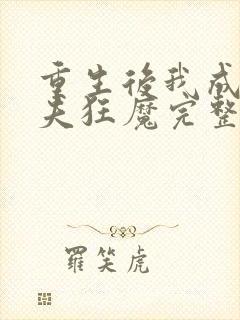 重生後我成
夫狂魔完整
羅笑虎